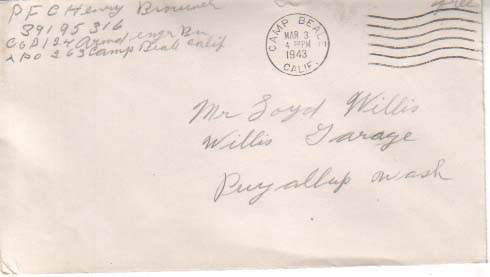 PFC Henry
39195316
Co D 124 Armd engr Bn
APO 263 Camp Beale Calif
Free
CAMP BEALE
MAR 3
4 PM
1943
CALIF.
Mr Loyd Willis
Willis Garage
Puyallup Wash